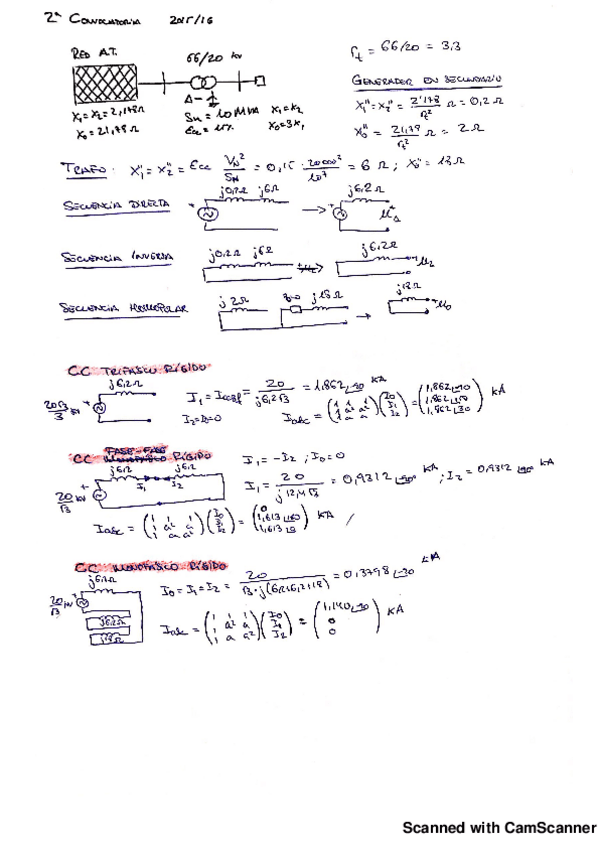 2ª CONVOCATORIA 2015/16
RED A.T.
66/20 kV
X₁=X₂=2,178Ω
X₀=21,78Ω
Δ-
Sn=10MVA X₁=X₂
Ecc= X₀=3X₁
rt = 66/20 = 3,3
GENERADOR EN SECUNDARIO
X₁''=X₂''= 2'178/rt² Ω = 0,2Ω
X₀''= 21,78/rt² Ω = 2Ω
TRAFO: X₁''=X₂''= Ecc VN²/SN = 0,15 · 20000²/10⁷ = 6Ω; X₀''=18Ω
SECUENCIA DIRECTA j0,2Ω j6Ω → j6,2Ω
SECUENCIA INVERSA j0,2Ω j6Ω → j6,2Ω U₂
SECUENCIA HOMOPOLAR j2Ω j18Ω → j18Ω U₀
CC TRIFÁSICO RÍGIDO
j6,2Ω
I₁ = = 20/j6,2√3 = 1,862∟-90 kA
I₂=I₀=0
Iabc = (1 1 1; 1 a² a; 1 a a²)(I₀; I₁; I₂) = (1,862∟-90; 1,862∟150; 1,862∟30) kA
FASE-FASE
CC RÍGIDO
20/√3 kV
I₁ I₂
I₁ = -I₂ ; I₀=0
I₁ = 20/j12,4√3 = 0,9312∟-90 kA ; I₂ = 0,9312∟90 kA
Iabc = (1 1 1; 1 a² a; 1 a a²)(I₀; I₁; I₂) = (0; 1,613∟180; 1,613∟0) kA
CC MONOFÁSICO RÍGIDO
j6,2Ω
20/√3 kV
j6,2Ω
j18Ω
I₀=I₁=I₂= 20/√3·j(6,2+6,2+18) = 0,3798∟-90 kA
Iabc = (1 1 1; 1 a² a; 1 a a²)(I₀; I₁; I₂) = (1,140∟-90; 0; 0) kA
Scanned with CamScanner